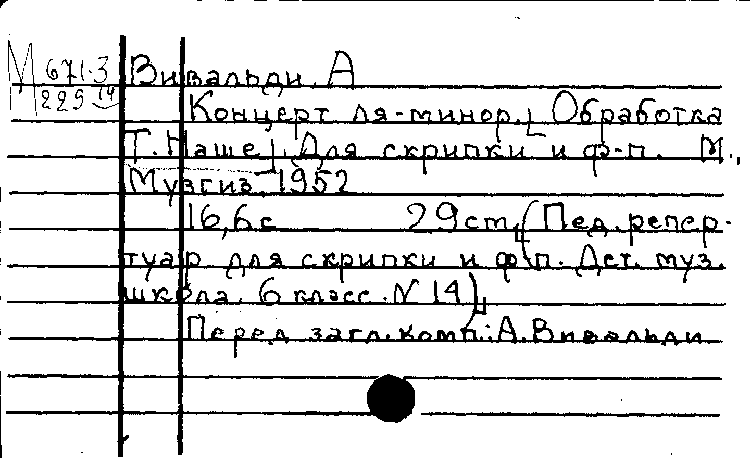 М 671.3
229
Вивальди. А
Концерт ля-минор. [Обработка
Т. Наше]. Для скрипки и ф-п. М.,
Музгиз. 1952
16,6 с 29 ст. (Пед. репер-
туар для скрипки и ф-п. Дет. муз.
школа. 6 класс. N 14)
Перед загл. комп.: А. Вивальди